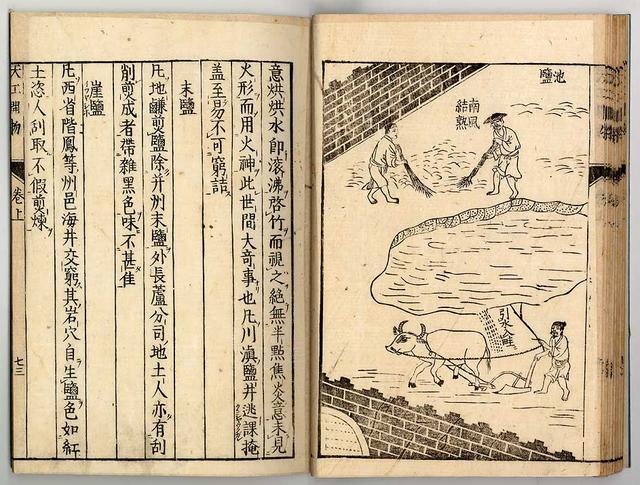 池鹽
南風
結熟
引水入畦
意烘烘水即滾沸啓竹而視之絶無半點焦炎意未見
火形而用火神此世間大奇事也凡川滇鹽井逃課掩
蓋至易不可窮詰
末鹽
凡地鹻煎鹽除并洲末鹽外長蘆分司地土人亦有刮
削煎成者帶雜黑色味不甚佳
崖鹽
凡西省階鳳等洲邑海井交窮其岩穴自生鹽色如紅
土恣人刮取不假煎煉
天工開物
卷上
七三